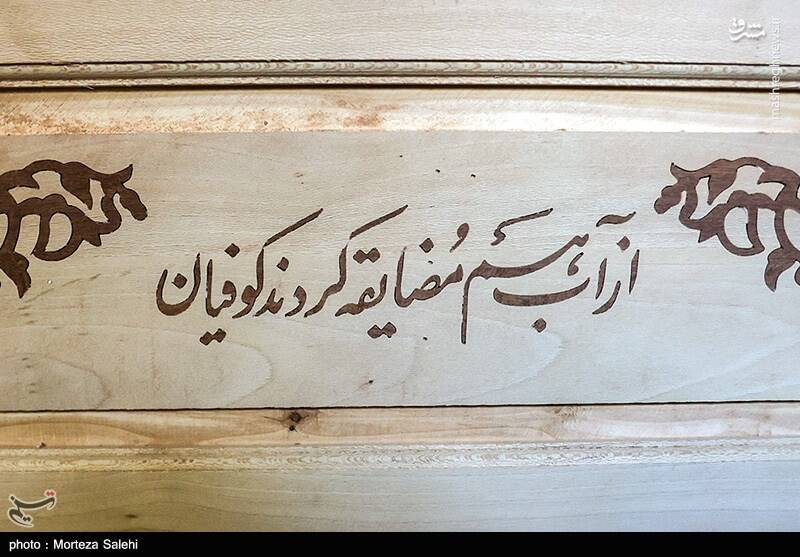 مشرق
mashreghnews.ir
از آب هم مُضایقه کردند کوفیان
تسنیم
photo : Morteza Salehi